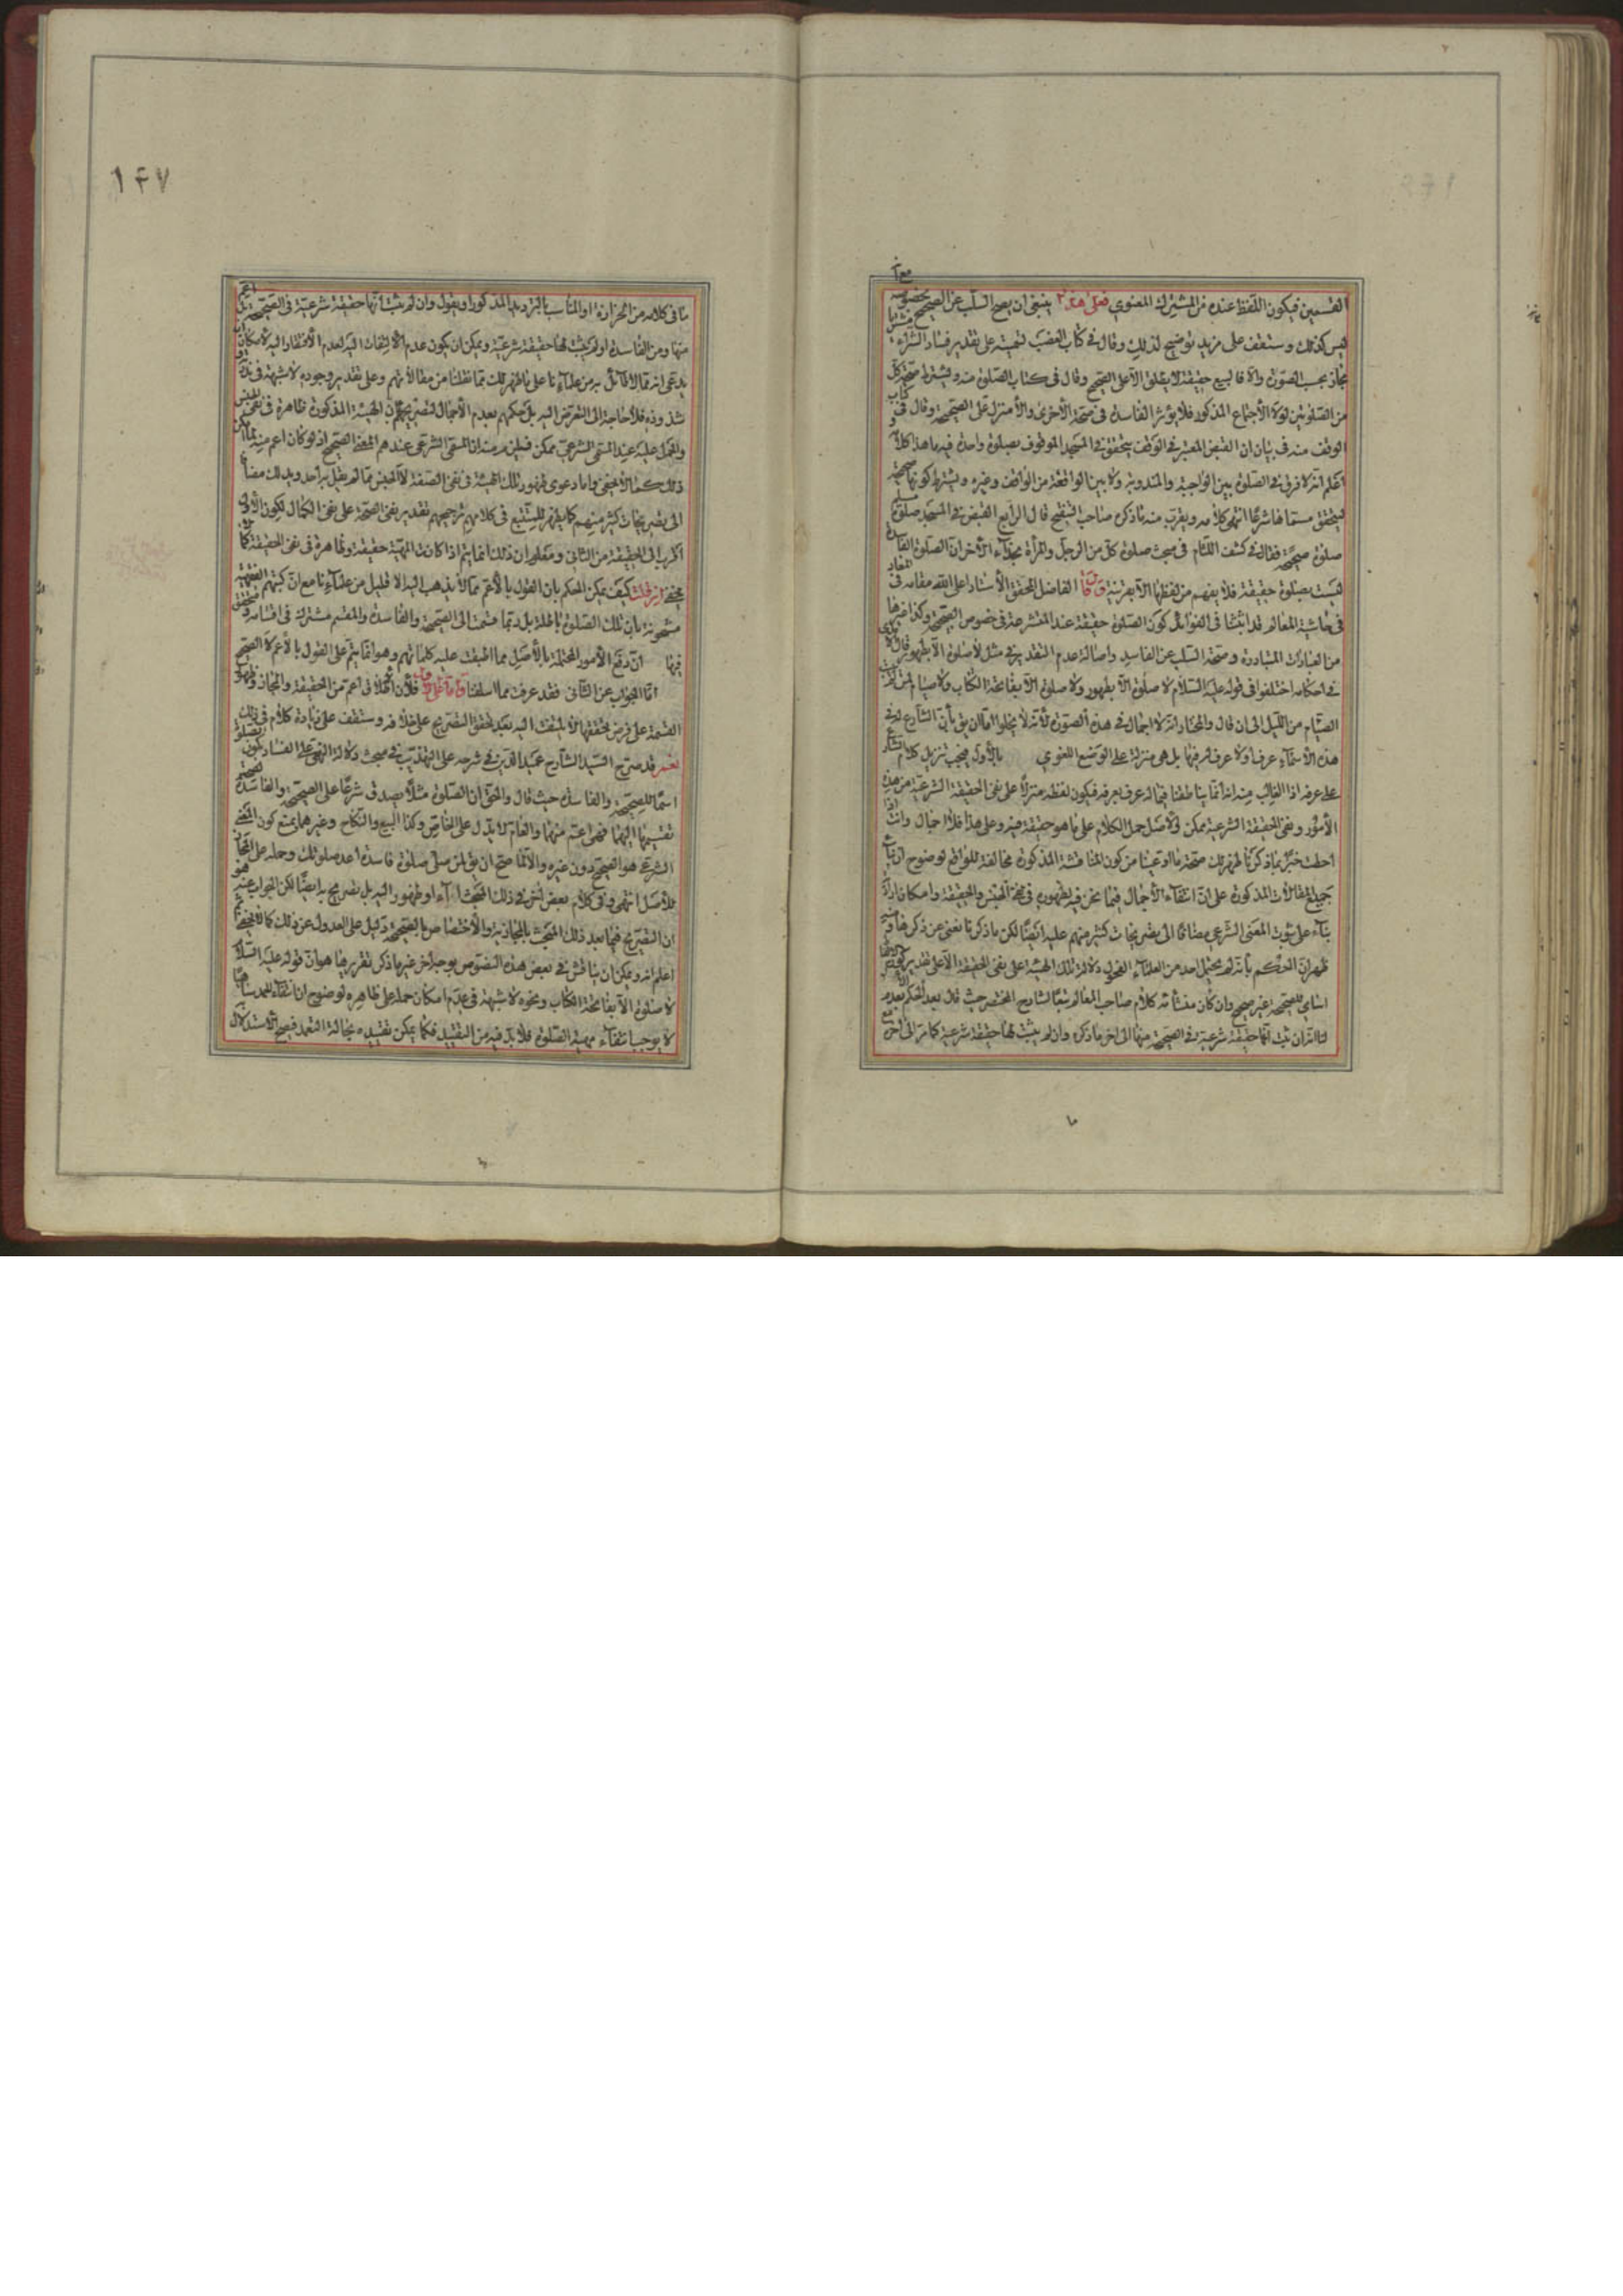 القسمين فيكون اللفظ عنده من المشترك المعنوي فعلى هذا ينبغي ان يصح السلب عن الصحيح بخصوصه مع انه
ليس كذلك وستقف على مزيد توضيح لذلك وقال في كتاب الغصب تسميته على تقدير فساد الشراء مشتريا
مجاز بحسب الصورة والا فالبيع حقيقة لا يطلق الا على الصحيح وقال في كتاب الصلوة منه ويشترط صحة كل
من الصلوتين لولا الاجتماع المذكور فلا يؤثر الفاسدة في صحة الاخرى والامر منزل على الصحيحة وقال في كتاب
الوقف منه في بيان ان القبض المعتبر في الوقف يتحقق في المسجد الموقوف بصلوة واحدة فيه ما هذا كلامه و
اعلم انه لا فرق في الصلوة بين الواجبة والمندوبة ولا بين الواقعة من الواقف وغيره ويشترط كونها صحيحة
ليتحقق مسماها شرعا انتهى كلامه ويقرب منه ما ذكره صاحب التنقيح قال الرابع القبض في المسجد صلوة مسلم
صلوة صحيحة فقال في كشف اللثام في مبحث صلوة كل من الرجل والمرأة بحذاء الاخر ان الصلوة الفاسدة
ليست بصلوة حقيقة فلا يفهم من لفظها الا بقرينة وقال الفاضل المحقق الاستاد اعلى الله مقامه في
في حاشية المعالم قد اثبتنا في الفوائد كون الصلوة حقيقة عند المتشرعة في خصوص الصحيحة وكذا غيرها
من العبادات المتبادرة وصحة السلب عن الفاسد واصالة عدم التقدير في مثل لا صلوة الا بطهور وقال
في احكامه اختلفوا في قوله عليه السلام لا صلوة الا بطهور ولا صلوة الا بفاتحة الكتاب ولا صيام لمن لم يبت
الصيام من الليل الى ان قال والمختار انه لا اجمال في هذه الصورة لانه لا يخلو اما ان يق بأن الشارع له في
هذه الاسماء عرف او لا عرف له فيها بل هي منزلة على الوضع اللغوي بالاول فيجب تنزيل كلام الشارع
على عرفه اذا الغالب منه انه انما يناطقنا فيما له عرف بعرفه فيكون لفظه منزلا على نفي الحقيقة الشرعية من هذه
الامور ونفي الحقيقة الشرعية ممكن والاصل حمل الكلام على ما هو حقيقة فيه وعلى هذا فلا اجمال وانت اذا
احطت خبرا بما ذكرنا ظهر لك صحة ما ادعينا من كون المناقشة المذكورة مخالفة للواقع لوضوح ان
جميع المقالات المذكورة على ان انتفاء الاجمال فيما نحن فيه لظهوره في نفي الجنس والحقيقة وامكان ارادته
بناء على ثبوت المعنى الشرعي مضافا الى تصريحات كثير منهم عليه ايضا لكن ما ذكرنا يغني عن ذكرها و
ظهر ان الحكم بأنه لم يحتمل احد من العلماء الفحول دلالة تلك الهيئة على نفي الحقيقة الا على تقدير كونها
اسامي للصحيحة غير صحيح وان كان منشأه كلام صاحب المعالم تبعا لشارح المختصر حيث قال بعد الحكم بعدم
لنا انه ان ثبت انها حقيقة شرعية في الصحيحة منها الى اخر ما ذكره وان لم يثبت لها حقيقة شرعية كما مر الى اخر
١٤٧
ما في كلامه من الحزازة او المناسب بالترديد المذكور او يقول وان لم يثبت انها حقيقة شرعية في الصحيحة
منها ومن الفاسدة او لم يثبت لها حقيقة شرعية ويمكن ان يكون عدم الالتفات اليه لعدم الافتقار اليه لامكان
يدعى انه مما لا قائل به من علمائنا على ما ظهر لك مما نقلنا من مقالاتهم وعلى تقدير وجوده لا شبهة في
شذوذه فلا حاجة الى التعرض اليه بل حكمهم بعدم الاجمال لتصريحهم بأن الهيئة المذكورة ظاهرة في نفي الجنس
والحمل عليه عند المسمى الشرعي ممكن فيلزم منه ان المسمى الشرعي عندهم المعنى الصحيح اذ لو كان اعم منه لما امكن
ذلك كما لا يخفى واما دعوى ظهور تلك الهيئة في نفي الصفة لا الجنس مما لم يقل به احد ويدلك مضافا
الى تصريحات كثير منهم كما يظهر للمتتبع في كلامهم ترجيحهم تقدير نفي الصحة على نفي الكمال لكون الاول
اقرب الى الحقيقة من الثاني ومعلوم ان ذلك انما يتم اذا كانت الهيئة حقيقة وظاهرة في نفي الحقيقة كما
يخفى فان قلت كيف يمكن الحكم بان القول بالاعم مما لا يذهب اليه الا قليل من علمائنا مع ان كتبهم الفقهية
مشحونة بان تلك الصلوة باطلة بل ربما قسمت الى الصحيحة والفاسدة والمقسم مشترك في اقسامه ومتحقق
فيها ان دفع الامور المحتملة بالاصل مما اطبقت عليه كلماتهم وهو انما يتم على القول بالاعم لا الصحيح
اما الجواب عن الثاني فقد عرفت مما اسلفنا واما عن الاول فلان اطلاق اعم من الحقيقة والمجاز وظهور
القسمة على فرض تحققها لا يلتفت اليه بعد تحقق التصريح على خلافه وستقف على زيادة كلام في ذلك
نعم قد صرح السيد الشارح عميد الدين في شرحه على التهذيب في مبحث دلالة النهي على الفساد بكون الصلوة
اسما للصحيحة والفاسدة حيث قال والحق ان الصلوة مثلا يصدق شرعا على الصحيحة والفاسدة لصحة
تقسيمها اليهما فهي اعم منهما والعام لا يدل على الخاص وكذا البيع والنكاح وغيرهما يمنع كون المعنى
الشرعي هو الصحيح دون غيره والا لما صح ان يق لمن صلى صلوة فاسدة اعد صلوتك وحمله على المجاز
للاصل انتهى وفي كلام بعض اخر في ذلك المبحث ايماء او ظهور اليه بل تصريح به ايضا لكن الجواب عنه هو
ان التصريح فيما بعد ذلك المبحث بالمجازية والاختصاص بالصحيحة دليل على العدول عن ذلك كما لا يخفى ثم
اعلم انه يمكن ان يناقش في بعض هذه النصوص بوجه اخر غير ما ذكر تقريرها هو ان قوله عليه السلام
لا صلوة الا بفاتحة الكتاب ونحوه لا شبهة في عدم امكان حمله على ظاهره لوضوح ان انتفاء الحمد نسيانا
لا يوجب انتفاء مهية الصلوة فلا بد فيه من التقييد فكما يمكن تقييده بحالة التعمد فيصح الاستدلال